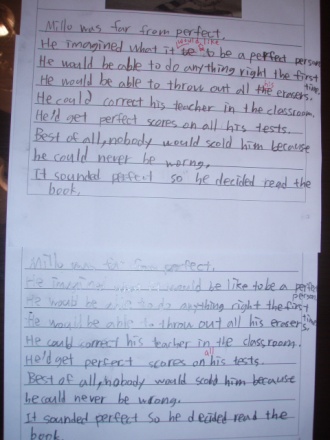 Millo was far from perfect.
would like
He imagined what it be to be a perfect person
He would be able to do anything right the first
time.
his
He would be able to throw out all the erasers.
He could correct his teacher in the classroom.
He'd get perfect scores on all his tests.
Best of all, nobody would scold him because
he could never be worng.
It sounded perfect so he decided read the
book.
Millo was far from perfect.
He imagined would be like to be a perfect
person
He would be able to do anything right the first
time
He would be able to throw out all his erasers
He could correct his teacher in the classroom.
all
He'd get perfect scores on his tests.
Best of all, nobody would scold him because
he could never be wrong.
It sounded perfect so he decided read the
book.